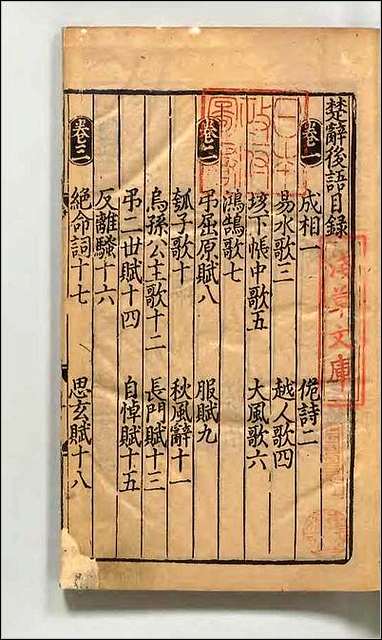 楚辭後語目録
卷一
成相一 佹詩二
易水歌三 越人歌四
垓下帳中歌五 大風歌六
鴻鵠歌七
卷二
弔屈原賦八 服賦九
瓠子歌十 秋風辭十一
烏孫公主歌十二 長門賦十三
弔二世賦十四 自悼賦十五
反離騷十六
卷三
絶命詞十七 思玄賦十八
淺草文庫
日本